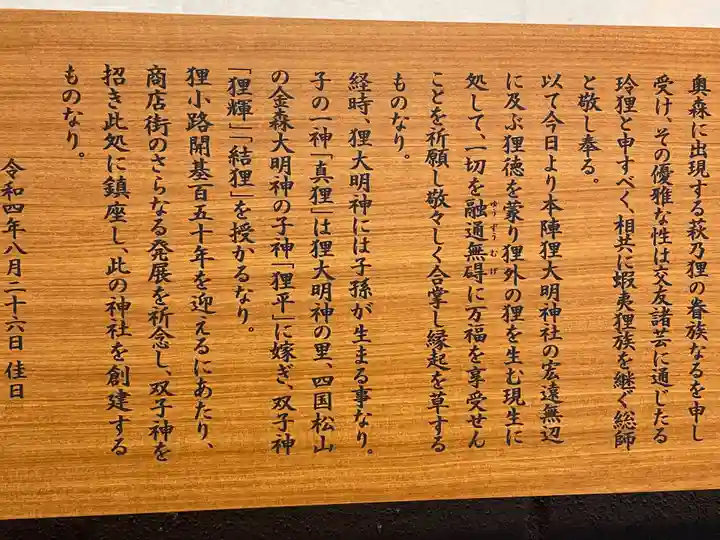 奥森に出現する萩乃狸の眷族なるを申し
受け、その優雅な性は交友諸芸に通じたる
玲狸と申すべく、相共に蝦夷狸族を継ぐ総師
と敬し奉る。
以て今日より本陣狸大明神社の宏遠無辺
に及ぶ狸徳を蒙り狸外の狸を生む現生に
処して、一切を融通無碍に万福を享受せん
ゆうずうむげ
ことを祈願し敬々しく合掌し縁起を草する
ものなり。
経時、狸大明神には子孫が生まる事なり。
子の一神「真狸」は狸大明神の里、四国松山
の金森大明神の子神「狸平」に嫁ぎ、双子神
「狸輝」「結狸」を授かるなり。
狸小路開基百五十年を迎えるにあたり、
商店街のさらなる発展を祈念し、双子神を
招き此処に鎮座し、此の神社を創建する
ものなり。
令和四年八月二十六日 佳日